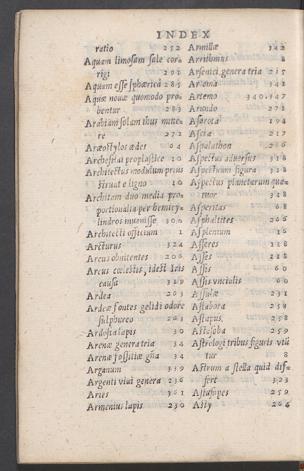 INDEX
ratio 252
Aquam limosam sale cor-
rigi 291
Aquam esse sphæricã 285
Aquæ nouæ quomodo pro
bentur 283
Arabiam solam thus mitte
re 272
Aræostylos ædes 64
Archestai proplastice 10
Architectus modulum prius
struat e ligno 10
Architam duo media pro
portionalia per hemicy-
lindros inuenisse 300
Architecti officium 1
Arcturus 324
Arcus obuitentes 206
Arcus cœlestis, idest Iris
causa 319
Ardea 203
Ardeæ fontes gelidi odore
sulphureo 261
Ardosia lapis 30
Arenæ genera tria 34
Arenæ fossitiæ gña 34
Arganum 359
Argenti viui genera 236
Aries 361
Armenius lapis 230
Armillæ 342
Arrithmus 8
Arsenici genera tria 235
Artema 342
Artemo 340.347
Arundo 271
Asarota 194
Ascia 217
Aspalathon 266
Aspectus aduersus 318
Aspectuum figura 318
Aspectus planetarum quæ-
tuor 318
Asperitas 68
Asphaltites 266
Asplenum 16
Asseres 118
Asses 118
Assis 60
Assis vncialis 60
Assulæ 231
Astabora 258
Astapus 258
Astosoba 259
Astrologi tribus figuris vtũ
tur 8
Astrum a stella quid dif-
fert 323
Astusapes 259
Asty 264